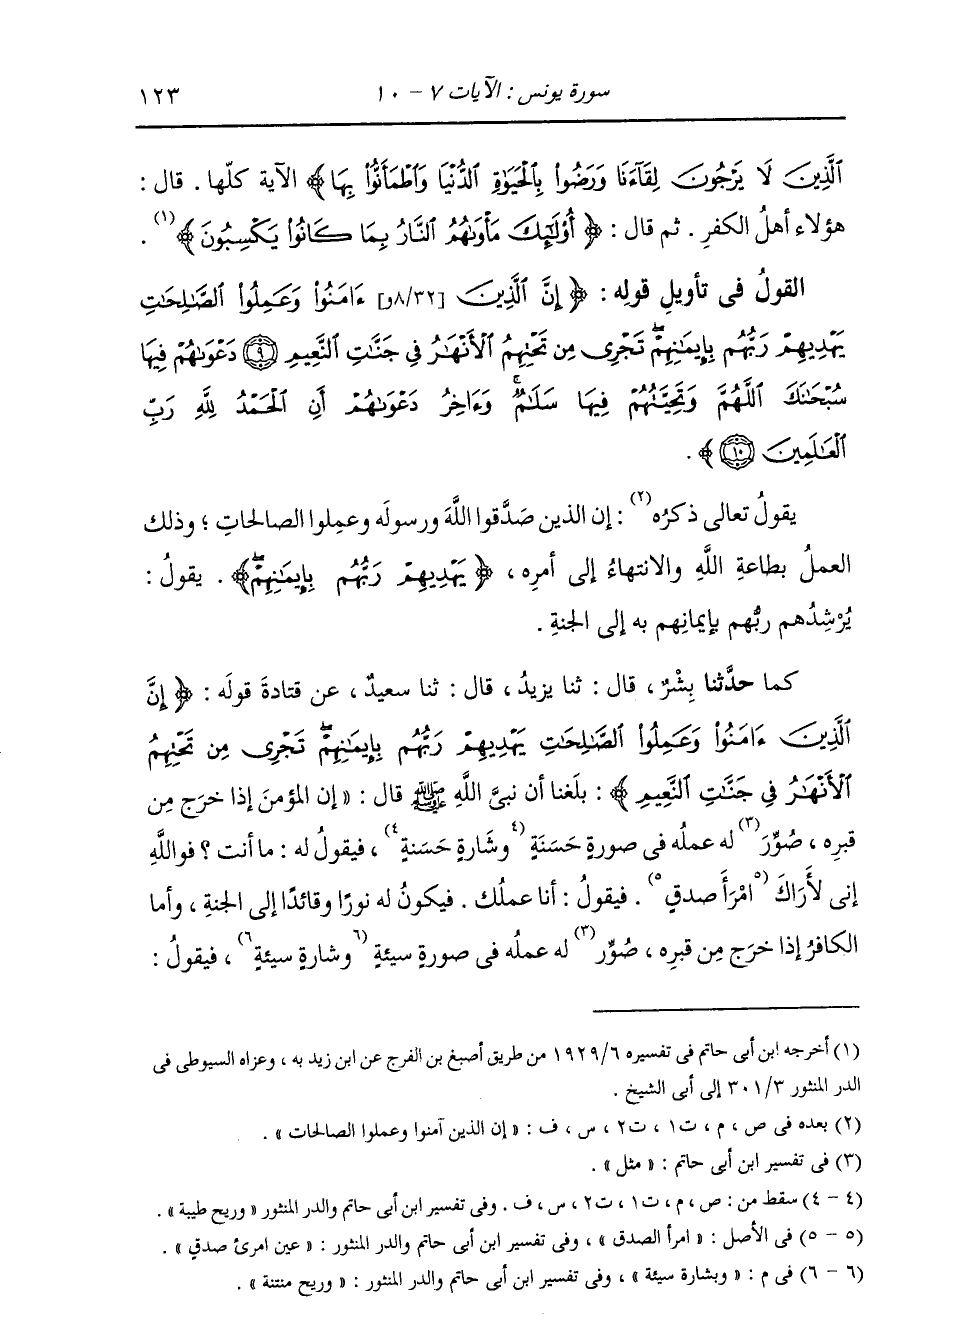 سورة يونس : الآيات ٧ - ١٠
١٢٣
ٱلَّذِينَ لَا يَرْجُونَ لِقَآءَنَا وَرَضُوا۟ بِٱلْحَيَوٰةِ ٱلدُّنْيَا وَٱطْمَأَنُّوا۟ بِهَا﴾ الآية كلّها . قال :
هؤلاء أهلُ الكفرِ . ثم قال : ﴿أُو۟لَٰٓئِكَ مَأْوَىٰهُمُ ٱلنَّارُ بِمَا كَانُوا۟ يَكْسِبُونَ﴾(١) .
القولُ فى تأويلِ قولِه : ﴿إِنَّ ٱلَّذِينَ [٨/٣٢و] ءَامَنُوا۟ وَعَمِلُوا۟ ٱلصَّٰلِحَٰتِ
يَهْدِيهِمْ رَبُّهُم بِإِيمَٰنِهِمْ ۖ تَجْرِى مِن تَحْتِهِمُ ٱلْأَنْهَٰرُ فِى جَنَّٰتِ ٱلنَّعِيمِ (٩) دَعْوَىٰهُمْ فِيهَا
سُبْحَٰنَكَ ٱللَّهُمَّ وَتَحِيَّتُهُمْ فِيهَا سَلَٰمٌ ۚ وَءَاخِرُ دَعْوَىٰهُمْ أَنِ ٱلْحَمْدُ لِلَّهِ رَبِّ
ٱلْعَٰلَمِينَ (١٠)﴾ .
يقولُ تعالى ذكرُه(٢) : إن الذين صَدَّقوا اللَّهَ ورسولَه وعمِلوا الصالحاتِ ؛ وذلك
العملُ بطاعةِ اللَّهِ والانتهاءُ إلى أمرِه ، ﴿يَهْدِيهِمْ رَبُّهُم بِإِيمَٰنِهِمْ ۖ﴾ . يقولُ :
يُرْشِدُهم ربُّهم بإيمانِهم به إلى الجنةِ .
كما حدَّثنا بِشْرٌ ، قال : ثنا يزيدُ ، قال : ثنا سعيدٌ ، عن قتادةَ قولَه : ﴿إِنَّ
ٱلَّذِينَ ءَامَنُوا۟ وَعَمِلُوا۟ ٱلصَّٰلِحَٰتِ يَهْدِيهِمْ رَبُّهُم بِإِيمَٰنِهِمْ ۖ تَجْرِى مِن تَحْتِهِمُ
ٱلْأَنْهَٰرُ فِى جَنَّٰتِ ٱلنَّعِيمِ﴾ : بلَغنا أن نبىَّ اللَّهِ ﷺ قال : « إن المؤمنَ إذا خرَج مِن
قبرِه ، صُوِّرَ(٣) له عملُه فى صورةٍ حَسَنَةٍ (٤وشَارةٍ حَسَنةٍ٤) ، فيقولُ له : ما أنت ؟ فواللَّهِ
إنى لأَرَاكَ (٥امْرَأَ صدقٍ٥) . فيقولُ : أنا عملُك . فيكونُ له نورًا وقائدًا إلى الجنةِ ، وأما
الكافرُ إذا خرَج مِن قبرِه ، صُوِّر(٣) له عملُه فى صورةٍ سيئةٍ (٦وشارةٍ سيئةٍ٦) ، فيقولُ :
(١) أخرجه ابن أبى حاتم فى تفسيره ١٩٢٩/٦ من طريق أصبغ بن الفرج عن ابن زيد به ، وعزاه السيوطى فى
الدر المنثور ٣٠١/٣ إلى أبى الشيخ .
(٢) بعده فى ص ، م ، ت١ ، ت٢ ، س ، ف : « إن الذين آمنوا وعملوا الصالحات » .
(٣) فى تفسير ابن أبى حاتم : « مثل » .
(٤ - ٤) سقط من : ص ، م ، ت١ ، ت٢ ، س ، ف . وفى تفسير ابن أبى حاتم والدر المنثور « وريح طيبة » .
(٥ - ٥) فى الأصل : « امرأ الصدق » ، وفى تفسير ابن أبى حاتم والدر المنثور : « عين امرئ صدق » .
(٦ - ٦) فى م : « وبشارة سيئة » ، وفى تفسير ابن أبى حاتم والدر المنثور : « وريح منتنة » .